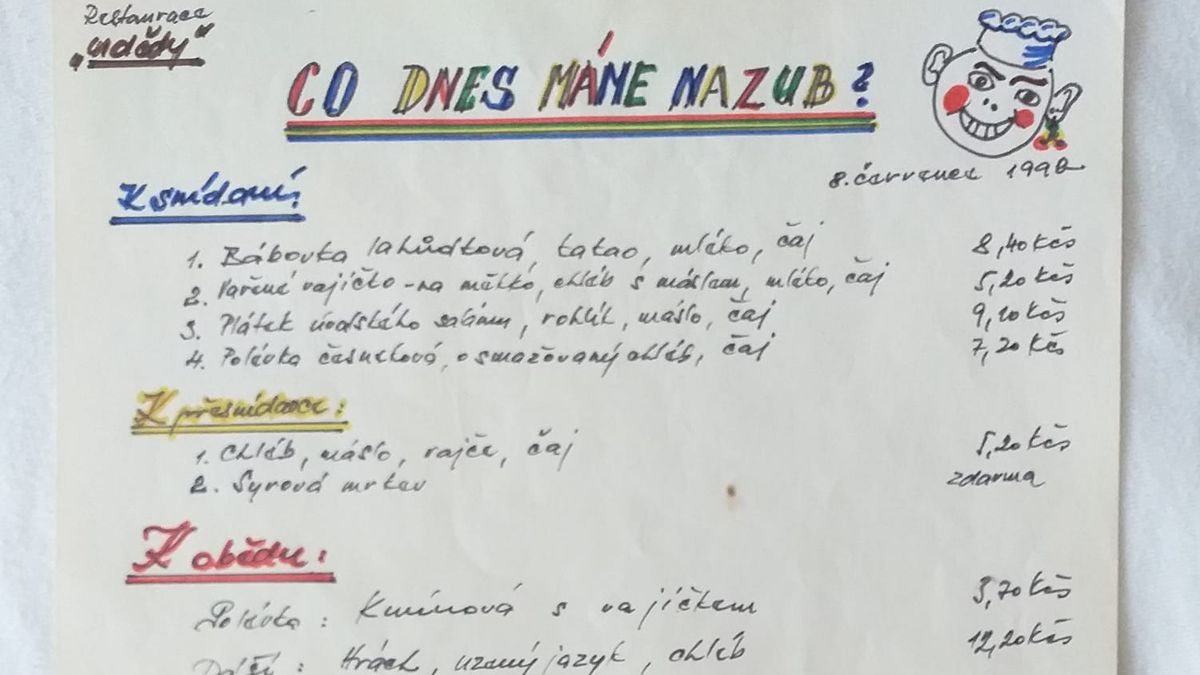 Restaurace
„U dědy"
CO DNES MÁME NA ZUB?
8. červenec 1990
K snídani:
1. Bábovka lahůdková, kakao, mléko, čaj 8,40 Kčs
2. Vařené vajíčko - na měkko, chléb s máslem, mléko, čaj 5,20 Kčs
3. Plátek lodského salámu, rohlík, máslo, čaj 9,10 Kčs
4. Polévka česneková, osmažovaný chléb, čaj 7,20 Kčs
K přesnídavce:
1. Chléb, máslo, rajče, čaj 5,20 Kčs
2. Syrová mrkev zdarma
K obědu:
Polévka: Kmínová s vajíčkem 3,70 Kčs
Hrách, uzený jazyk, chléb 12,20 Kčs